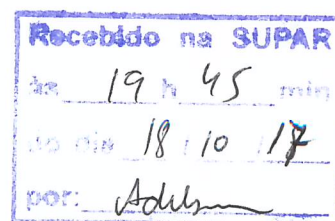 Recebido na SUPAR
às 19 h 45 min
do dia 18 / 10 / 17
por: